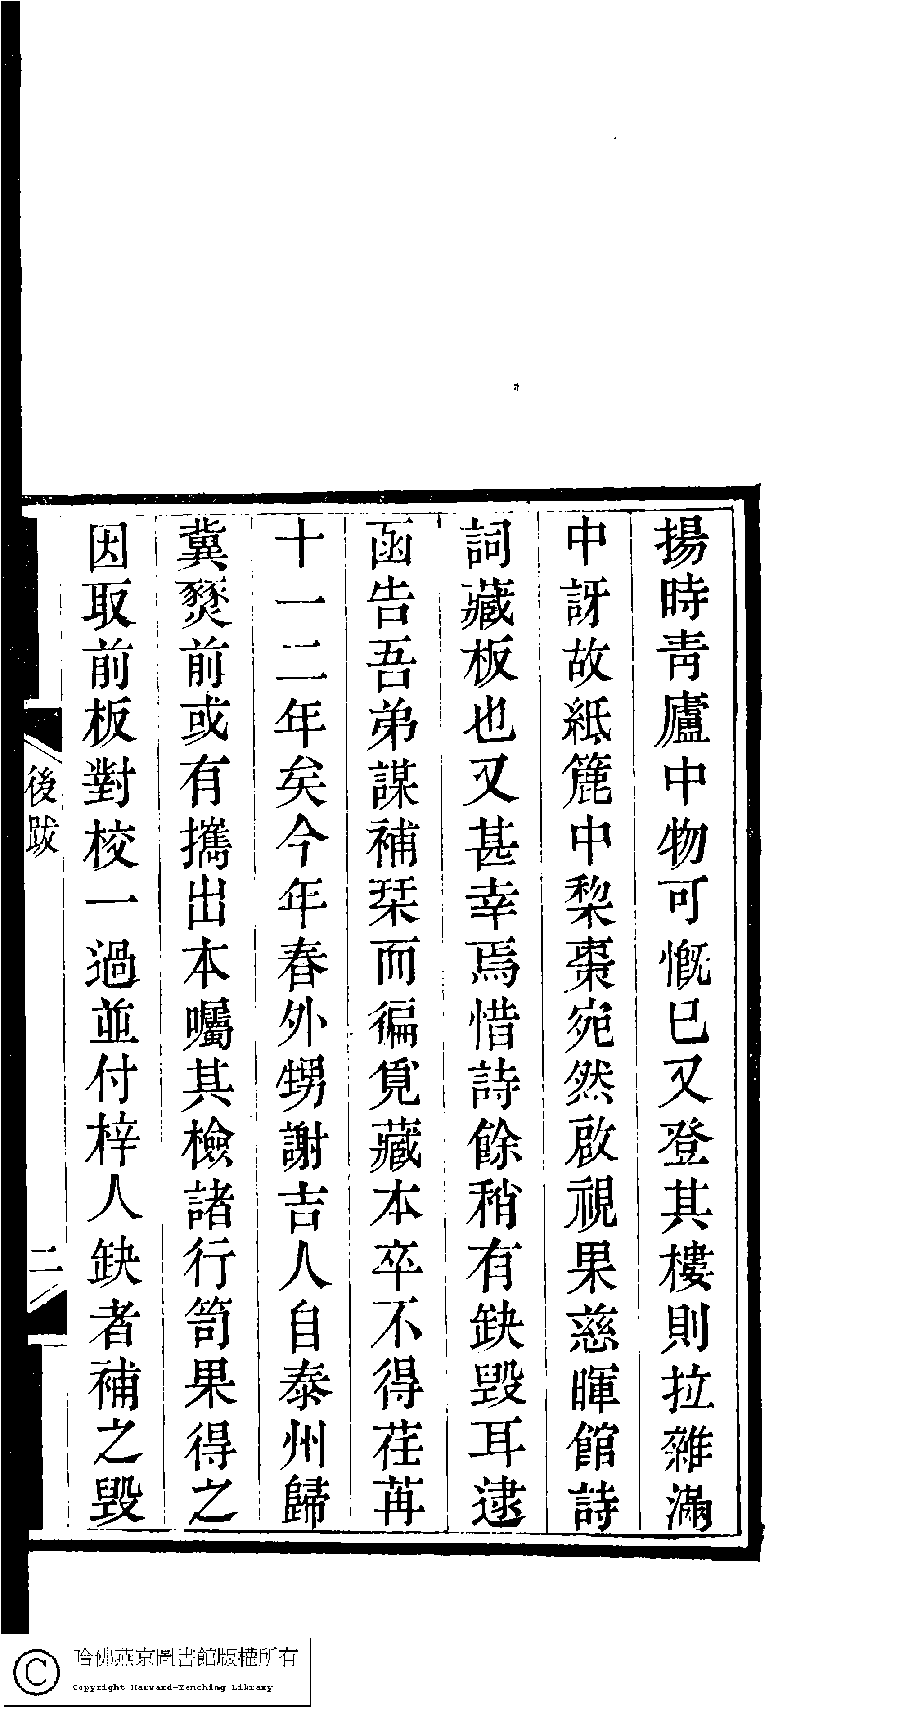 揚時青廬中物可慨已又登其樓則拉雜滿
中訝故紙簏中棃棗宛然啟視果慈暉館詩
詞藏板也又甚幸焉惜詩餘稍有缺毀耳逮
函告吾弟謀補栞而徧覓藏本卒不得荏苒
十一二年矣今年春外甥謝吉人自泰州歸
冀燹前或有攜出本囑其檢諸行笥果得之
因取前板對校一過並付梓人缺者補之毀
後跋
二
哈佛燕京圖書館版權所有
Copyright Harvard-Yenching Library